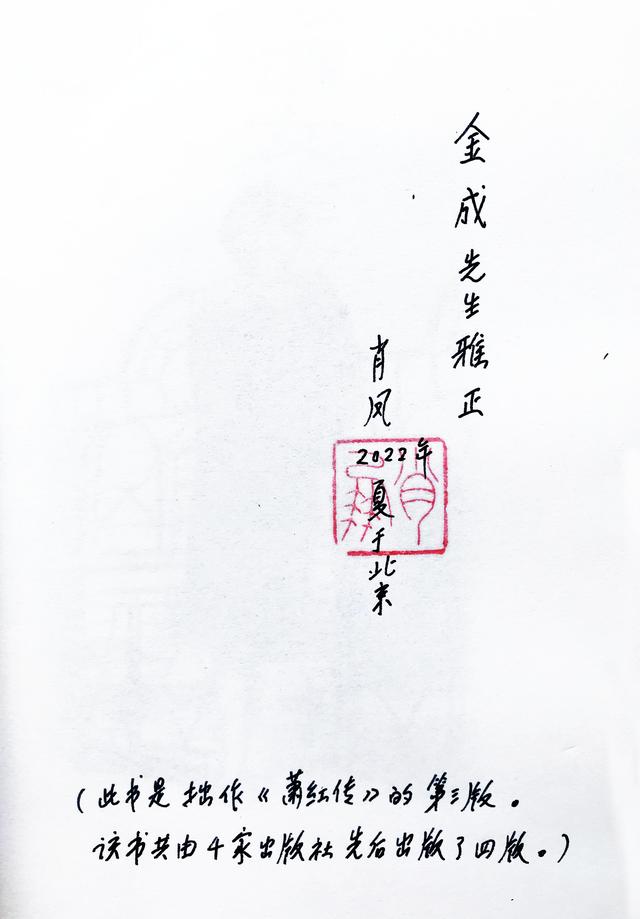 金成先生雅正
肖凤
2022年
夏于北京
(此书是拙作《萧红传》的第三版。
该书共由4家出版社先后出版了四版。)